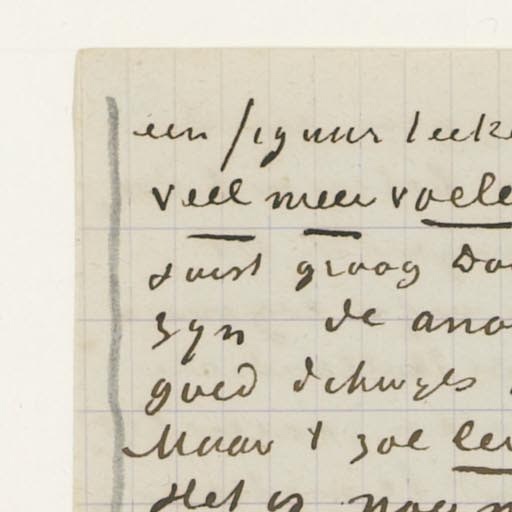 een figuur teeke
veel meer voele
juist graag Do
zyn de ana
goed
Maar t zal lev
Het is nog